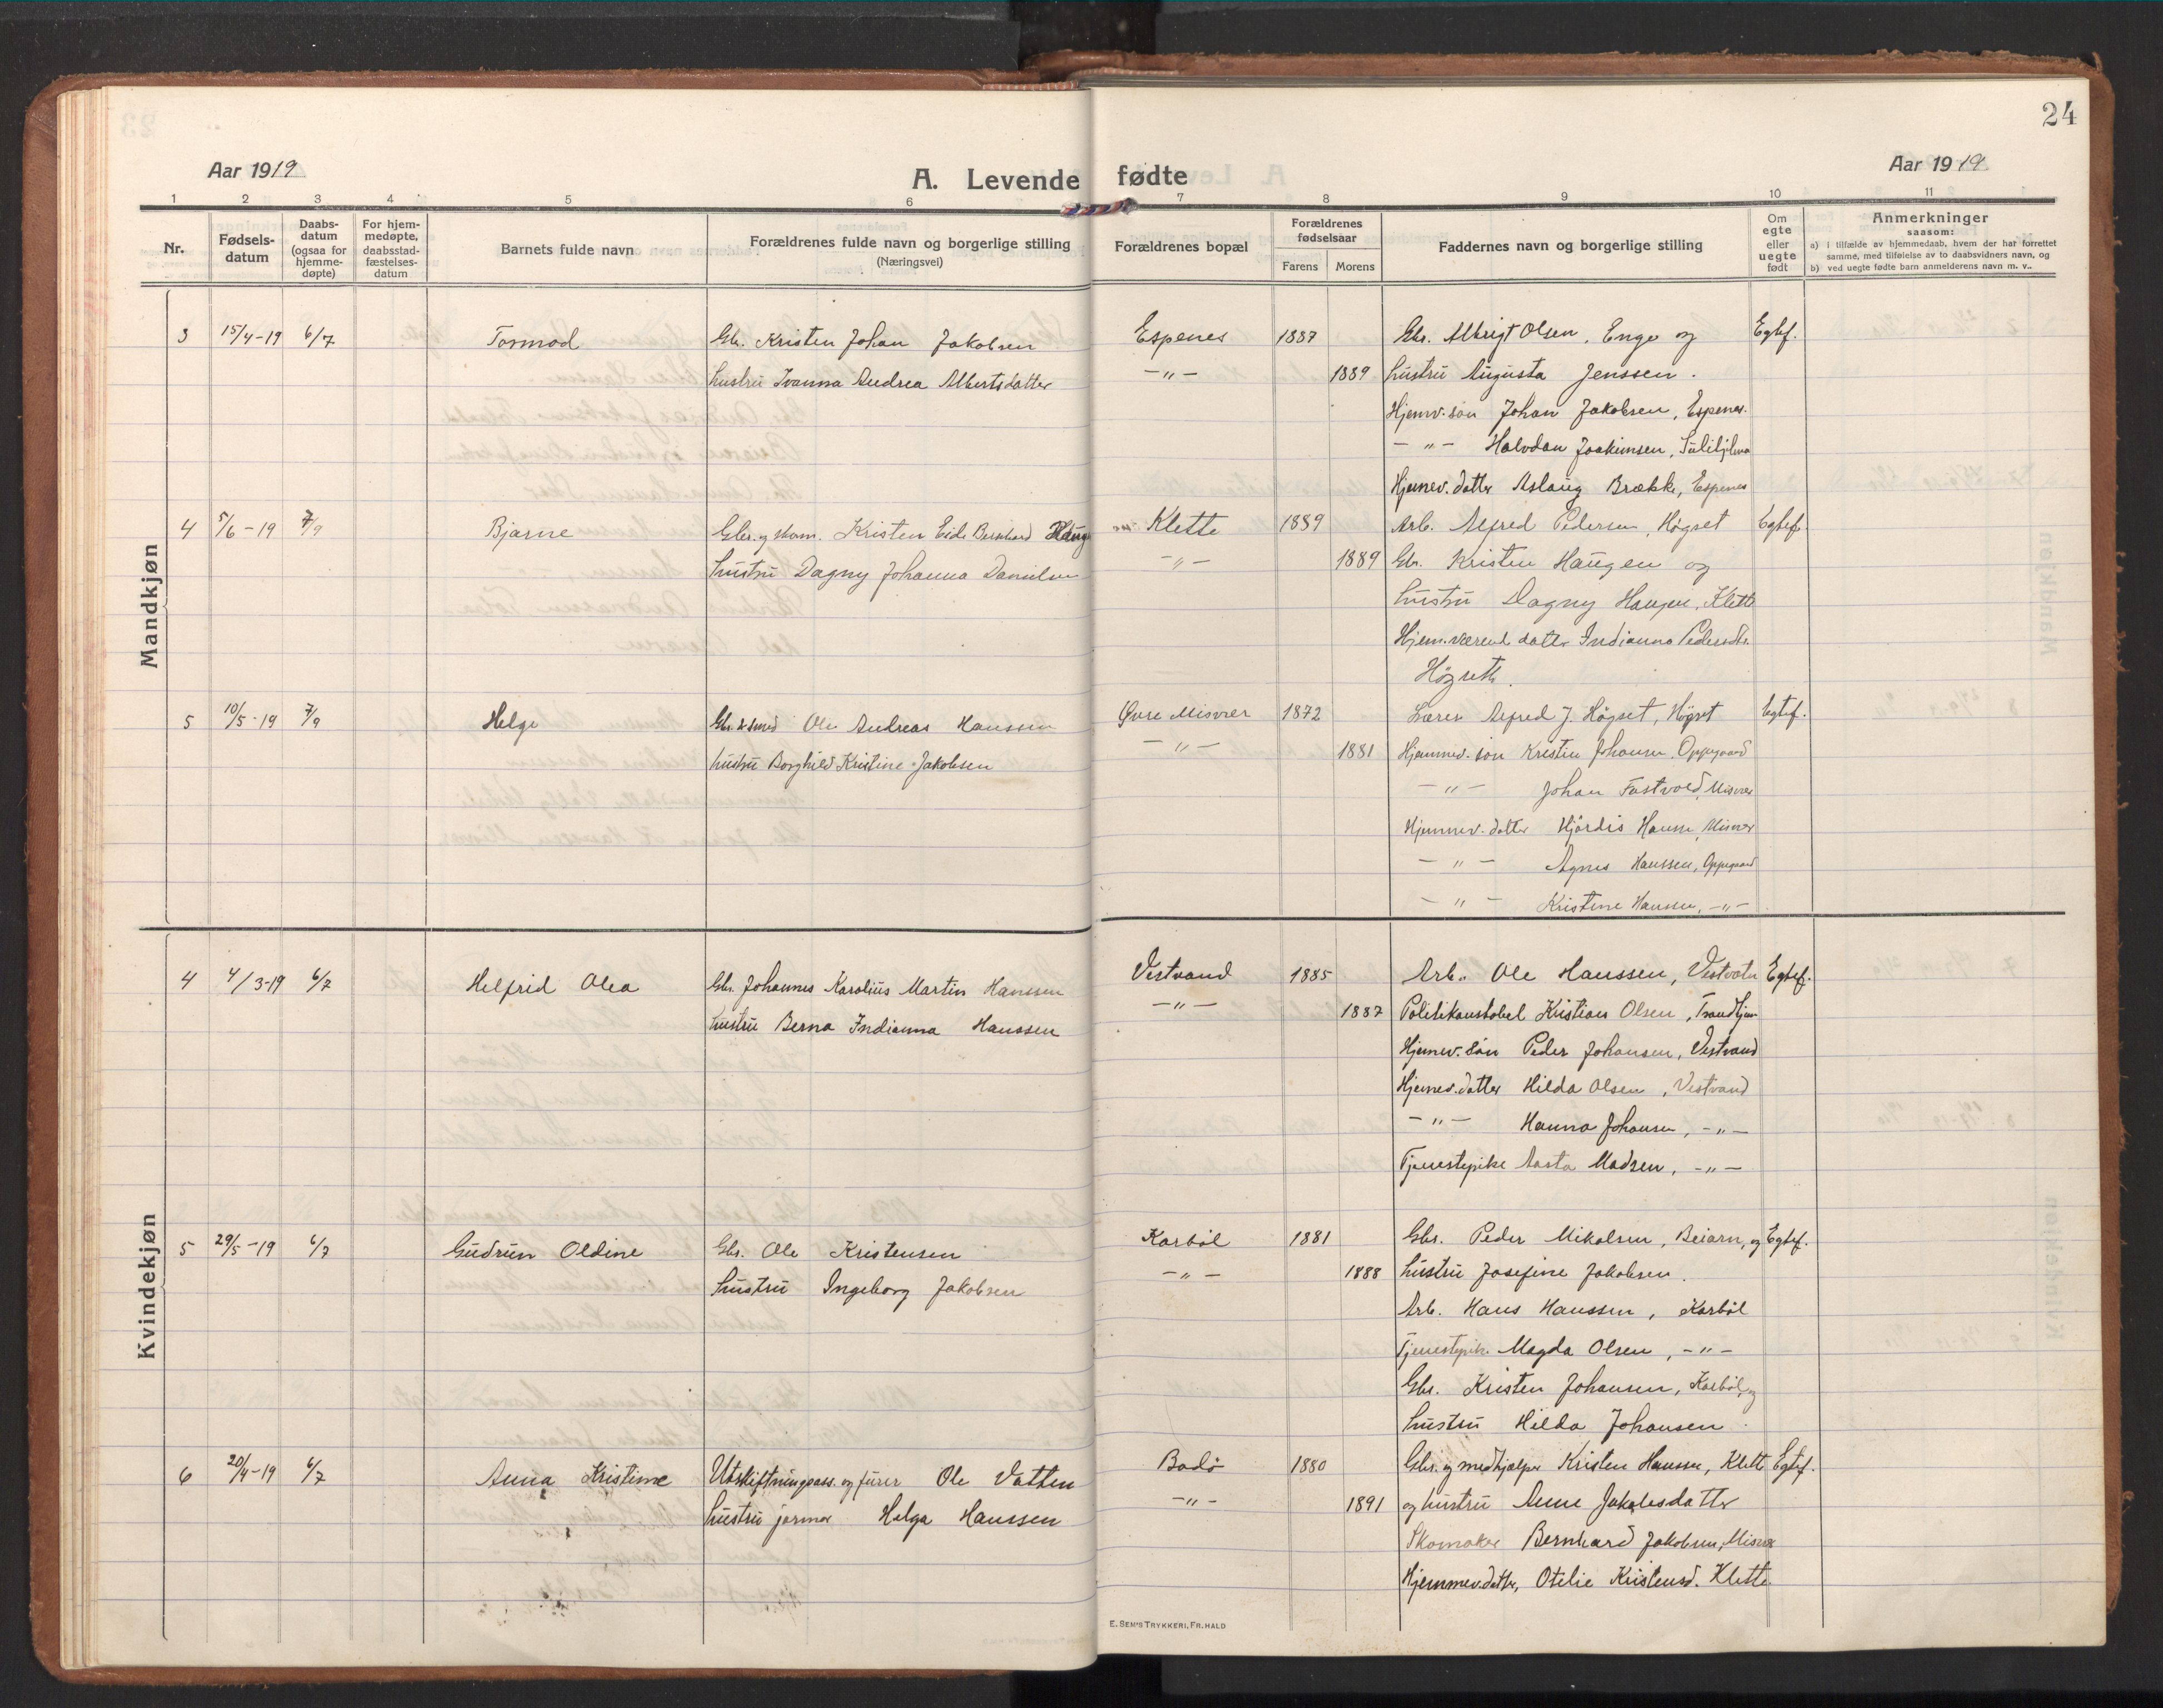 24
Aar 1919
A. Levende fødte
Aar 1919
1 2 3 4 5 6 7 8 9 10 11
Nr.
Fødsels-
datum
Daabs-
datum
(ogsaa for
hjemme-
døpte)
For hjem-
medøpte,
daabsstad-
fæstelses-
datum
Barnets fulde navn
Forældrenes fulde navn og borgerlige stilling
(Næringsvei)
Forældrenes bopæl
Forældrenes
fødselsaar
Farens Morens
Faddernes navn og borgerlige stilling
Om
egte
eller
uegte
født
Anmerkninger
saasom:
a) i tilfælde av hjemmedaab, hvem der har forrettet
samme, med tilføielse av to daabsvidners navn, og
b) ved uegte fødte barn anmelderens navn m. v..
Mandkjøn
3 15/4-19 6/7 Tormod Gbr. Kristen Johan Jakobsen Espenes 1887 Gbr. Albrigt Olsen, Enge og Egtef.
hustru Ivanna Andrea Albertsdatter -"- 1889 hustru Augusta Jenssen.
Hjemv. søn Johan Jakobsen, Espenes.
-"- Halvdan Joakimsen, Sulitjelma
Hjemev. datter Aslaug Brække, Espenes
4 5/6-19 7/9 Bjarne Gbr. og skom. Kristen Eide Bernhard Haug Klette 1889 Arb. Alfred Pedersen, Høgset Egtef.
hustru Dagny Johanna Danielsen -"- 1889 Gbr. Kristen Haugen og
hustru Dagny Haugen, Klette
Hjem.værend datter Indianna Pedersdtr.
Høgseth.
5 10/5-19 7/9 Helge Gbr & smed Ole Andreas Hanssen Øvre Misvær 1872 Lærer Alfred J. Høgset, Høgset Egtef.
hustru Borghild Kristine Jakobsen -"- 1881 Hjemmev. søn Kristen Johansen, Oppegaard
-"- Johan Fastvold, Misvær
Hjemmev. datter Hjørdis Hanssen, Misvær
-"- Agnes Hanssen, Oppegaard
-"- Kristine Hanssen, -"-
Kvindekjøn
4 4/3-19 6/7 Helfrid Olea Gbr. Johannes Karolius Martin Hanssen Vestvand 1885 Arb. Ole Hanssen, Vestvatn Egtef.
hustru Berna Indianna Hanssen -"- 1887 Politikonstabel Kristian Olsen, Trondhjem
Hjemev. søn Peder Johansen, Vestvand
Hjemev. datter Hilda Olsen, Vestvand
-"- Hanna Johansen, -"-
Tjenestepike Aasta Madsen, -"-
5 29/5-19 6/7 Gudrun Oldine Gbr. Ole Kristensen Karbøl 1881 Gbr. Peder Mikalsen, Beiarn, og Egtef.
hustru Ingeborg Jakobsen -"- 1888 hustru Josefine Jakobsen.
Arb. Hans Hanssen, Karbøl
Tjenestepike Magda Olsen, -"-
Gbr. Kristen Johansen, Karbøl, og
hustru Hilda Johansen.
6 20/4-19 6/7 Anna Kristine Utskiftningsass. og furer Ole Vatten Bodø 1880 Gbr. og medhjælper Kristen Hanssen, Klette Egtef.
hustru jormor Helga Hanssen -"- 1891 og hustru Anne Jakobsdatter
Skomaker Bernhard Jakobsen, Misvær
Hjemmev. datter, Otelie Kristensd. Klette.
E. Sem's Trykkeri, Fr.hald